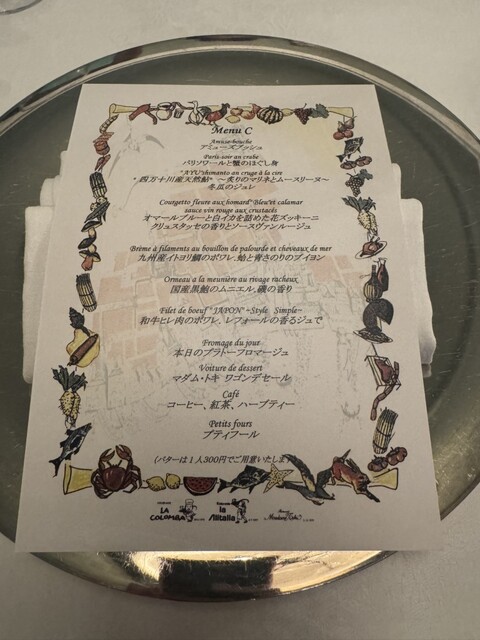 Menu C
Amuse-bouche
アミューズブッシュ
Paris-soir au crabe
パリソワールと蟹のほぐし身
"AYU"shimanto au cruge à la cire
・四万十川産天然鮎 ～炙りのマリネとムースリーヌ～
冬瓜のジュレ
Courgette fleure aux homard"Bleu"et calamar
sauce vin rouge aux crustacés
オマールブルーと白イカを詰めた花ズッキーニ
クリュスタッセの香りとソースヴァンルージュ
Brème à filaments au bouillon de palourde et cheveaux de mer
九州産イトヨリ鯛のポワレ、蛤と青さのりのブイヨン
Ormeau a la meunière au rivage racheux
国産黒鮑のムニエル、磯の香り
Filet de boeuf "JAPON" ~Style Simple~
和牛ヒレ肉のポワレ、レフォールの香るジュで
Fromage du jour
本日のプラトーフロマージュ
Voiture de dessert
マダム・トキ ワゴンデセール
Café
コーヒー、紅茶、ハーブティー
Petits fours
プティフール
(バターは1人300円でご用意いたしま
LA COLOMBA
la Alitalia
Madame Toki